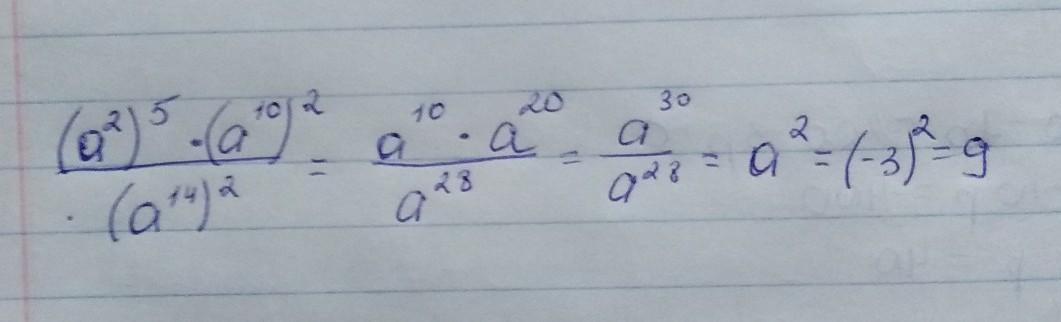 (a²)⁵ · (a¹⁰)² / (a¹⁴)² = a¹⁰ · a²⁰ / a²⁸ = a³⁰ / a²⁸ = a² = (-3)² = 9